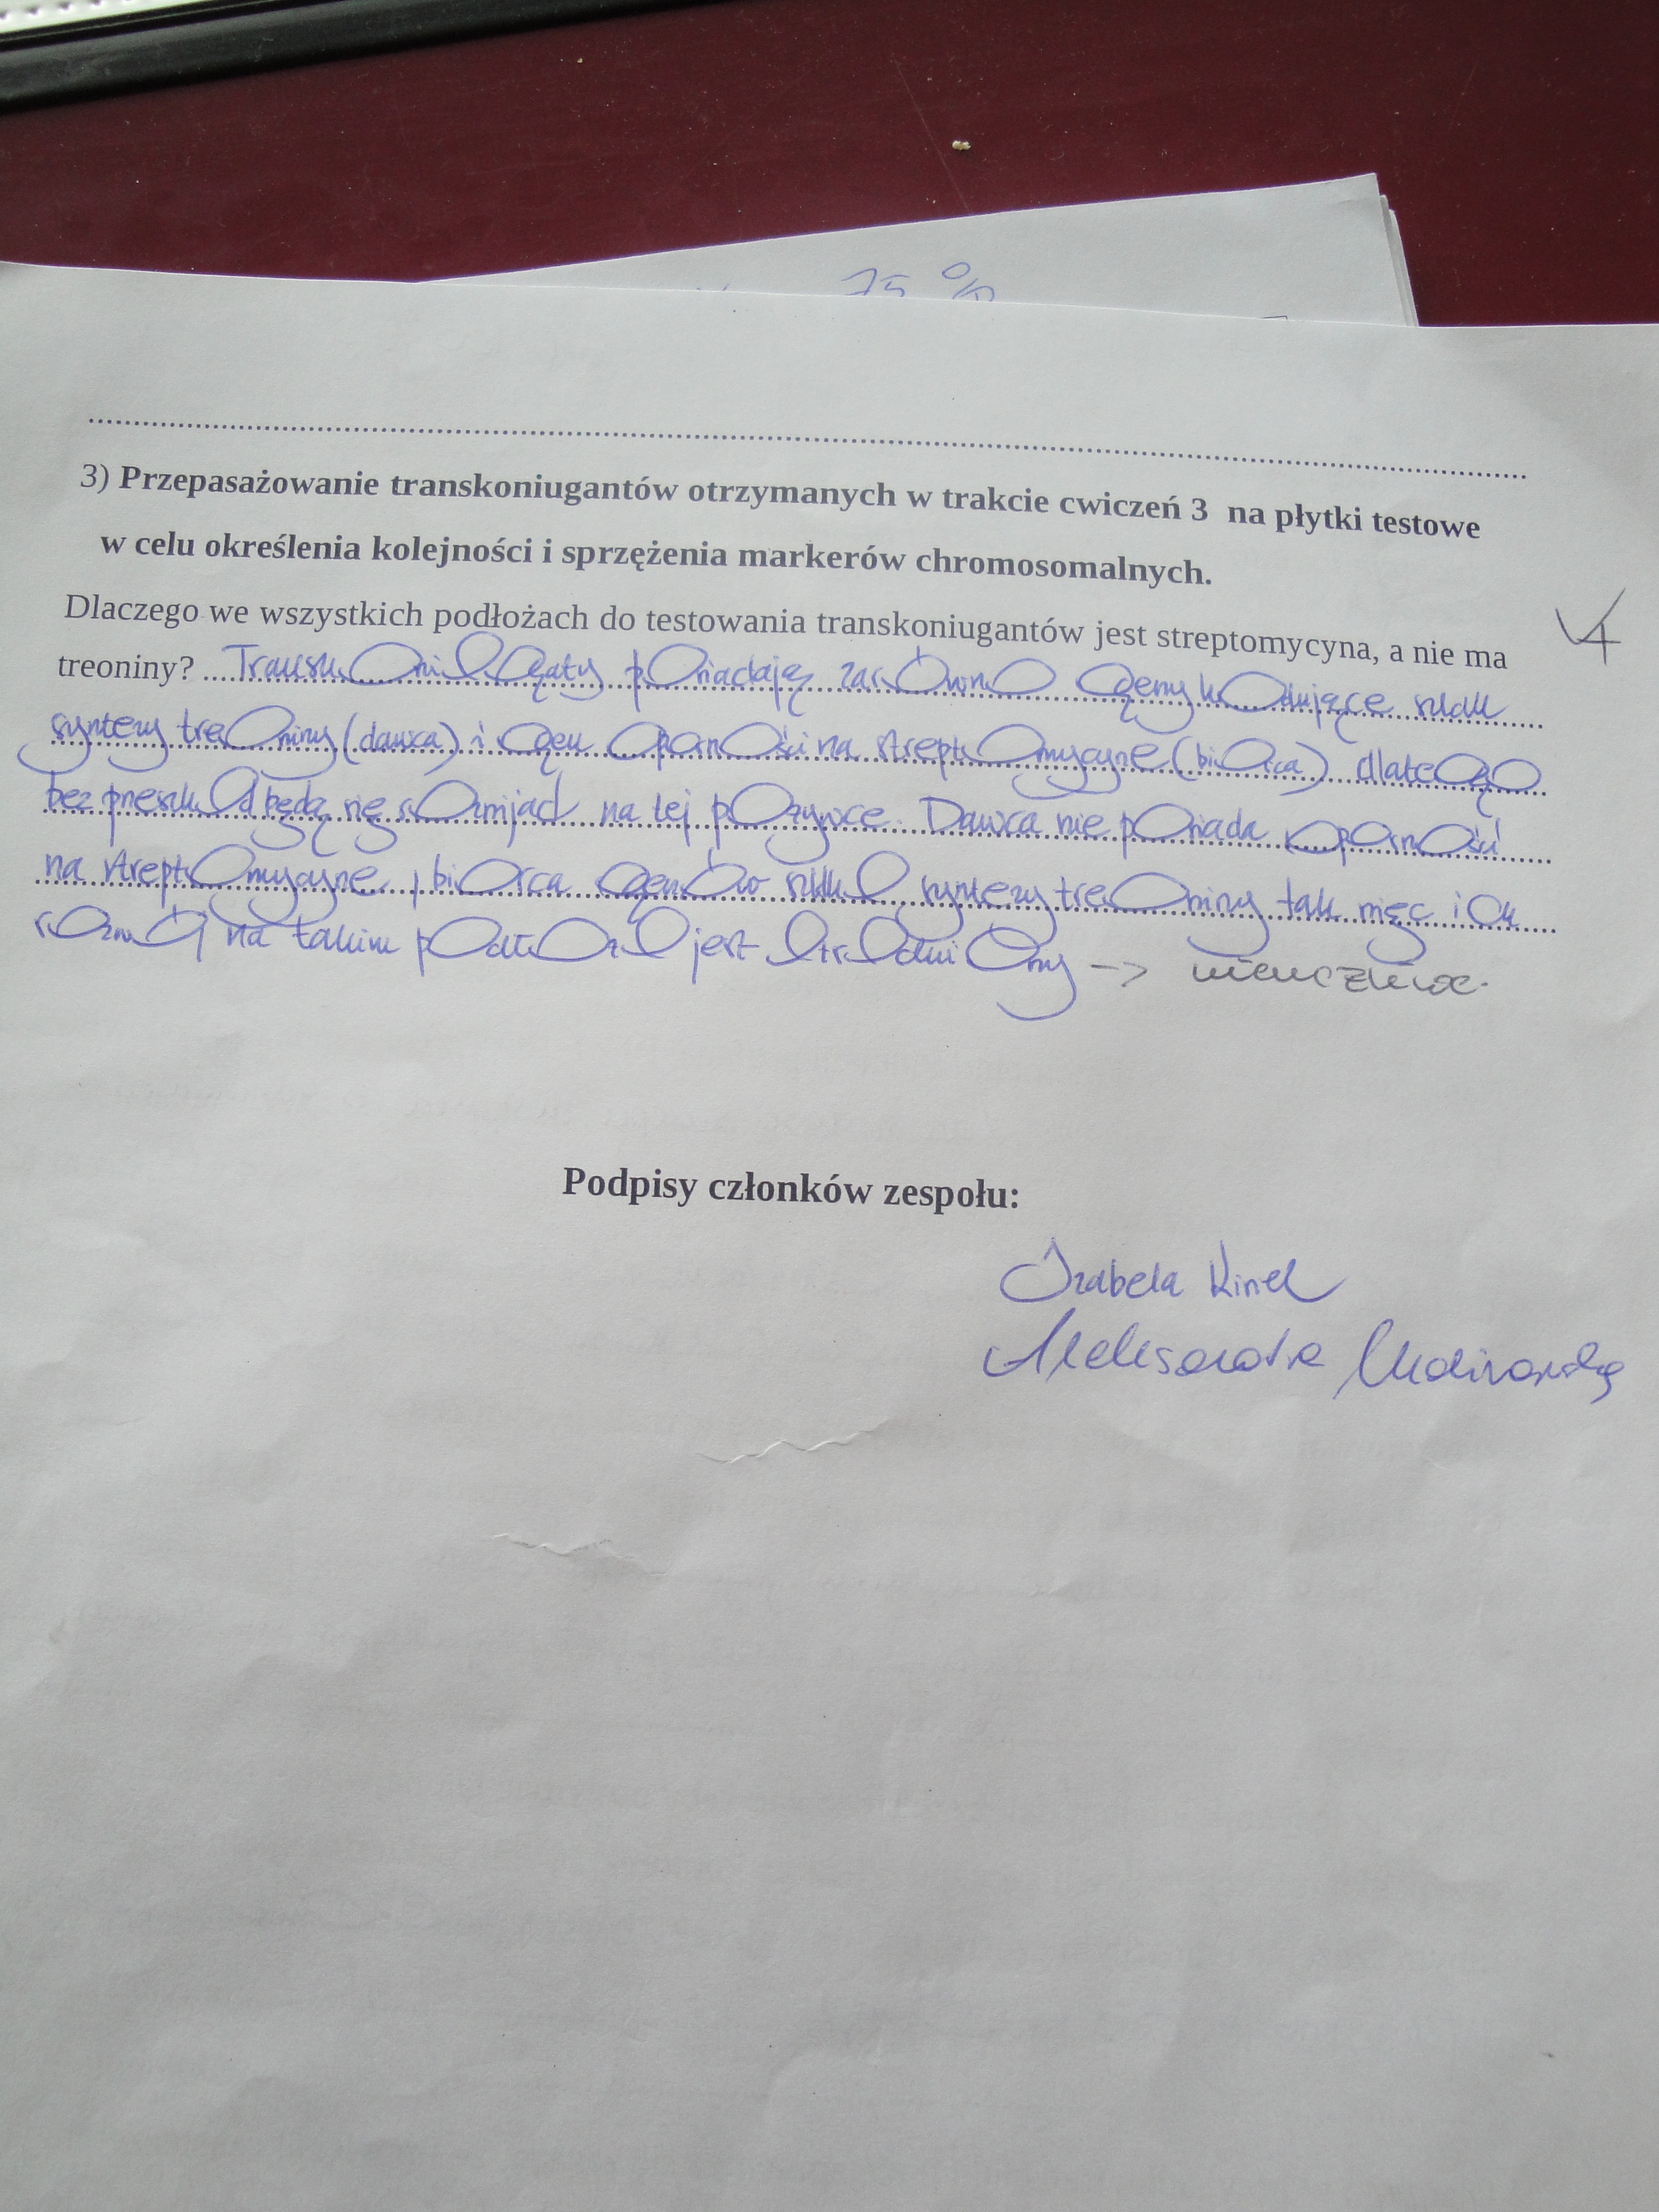 75 %
3) Przepasażowanie transkoniugantów otrzymanych w trakcie cwiczeń 3 na płytki testowe
w celu określenia kolejności i sprzężenia markerów chromosomalnych.
Dlaczego we wszystkich podłożach do testowania transkoniugantów jest streptomycyna, a nie ma
treoniny? Transkoniuganty posiadają zarówno geny kodujące szlak
syntezy treoniny (dawca) i gen oporności na streptomycynę (biorca) dlatego
bez przeszkód będą się rozwijać na tej pożywce. Dawca nie posiada oporności
na streptomycynę, biorca genów szlaku syntezy treoniny tak więc ich
rozwój na takim podłożu jest utrudniony -> niemożliwe.
4
Podpisy członków zespołu:
Izabela
Aleksandra